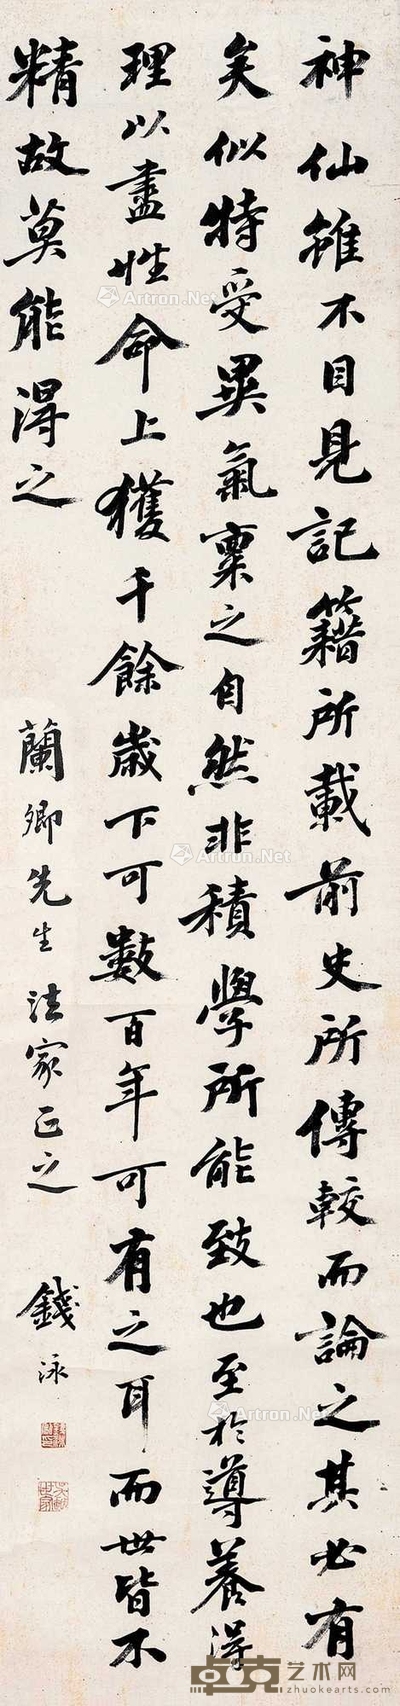 神仙雖不目見記籍所載前史所傳較而論之其必有
矣似特受異氣稟之自然非積學所能致也至於導養得
理以盡性命上獲千餘歲下可數百年可有之耳而世皆不
精故莫能得之
蘭卿先生法家正之
錢泳
Artron.Net
Artron.Net
Artron.Net
Artron.Net
Artron.Net
Artron.Net
卓克艺术网
zhuokearts.com